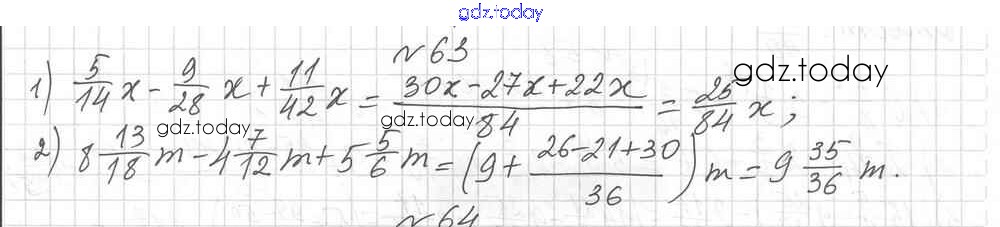 gdz.today
№ 63
1) 5/14 x - 9/28 x + 11/42 x = (30x - 27x + 22x)/84 = 25/84 x;
gdz.today
gdz.today
gdz.today
2) 8 13/18 m - 4 7/12 m + 5 5/6 m = (9 + (26 - 21 + 30)/36) m = 9 35/36 m.
№ 64